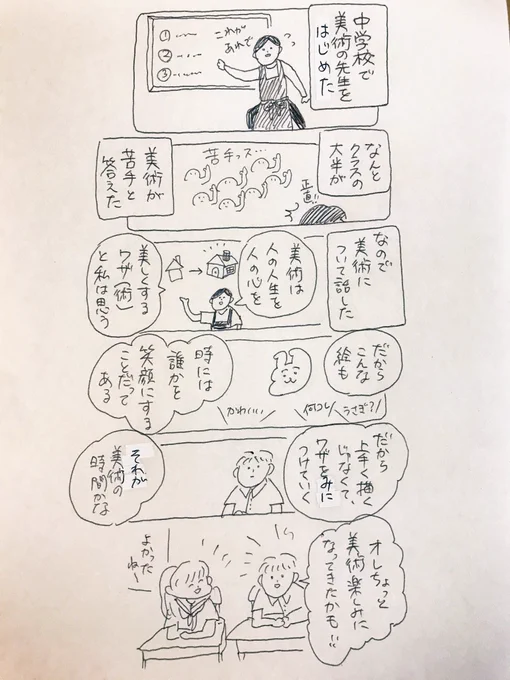 中学校で
美術の先生を
はじめた
これが
あれで
①
②
③
なんと
クラスの
大半が
苦手っス…
正直!!
美術が
苦手と
答えた
なので
美術に
ついて話した
美術は
人の人生を
人の心を
美しくする
ワザ(術)
と私は思う
だから
こんな
絵も
うさぎ?
何コレ
かわいい
時には
誰かを
笑顔にする
ことだって
ある
だから
上手く描く
じゃなくて、
ワザをみに
つけていく
それが
美術の
時間かな
オレちょっと
美術楽しみに
なってきたかも!!
よかった
ね〜